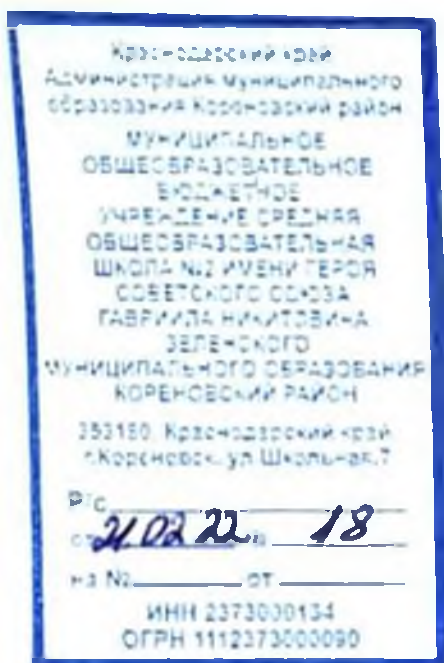 Краснодарский край
Администрация муниципального
образования Кореновский район
МУНИЦИПАЛЬНОЕ
ОБЩЕОБРАЗОВАТЕЛЬНОЕ
БЮДЖЕТНОЕ
УЧРЕЖДЕНИЕ СРЕДНЯЯ
ОБЩЕОБРАЗОВАТЕЛЬНАЯ
ШКОЛА №2 ИМЕНИ ГЕРОЯ
СОВЕТСКОГО СОЮЗА
ГАВРИИЛА НИКИТОВИЧА
ЗЕЛЕНСКОГО
МУНИЦИПАЛЬНОГО ОБРАЗОВАНИЯ
КОРЕНОВСКИЙ РАЙОН
353180, Краснодарский край
г.Кореновск, ул.Школьная,7
Р/с
от 21.02.22 № 18
на № от
ИНН 2373000134
ОГРН 1112373000090